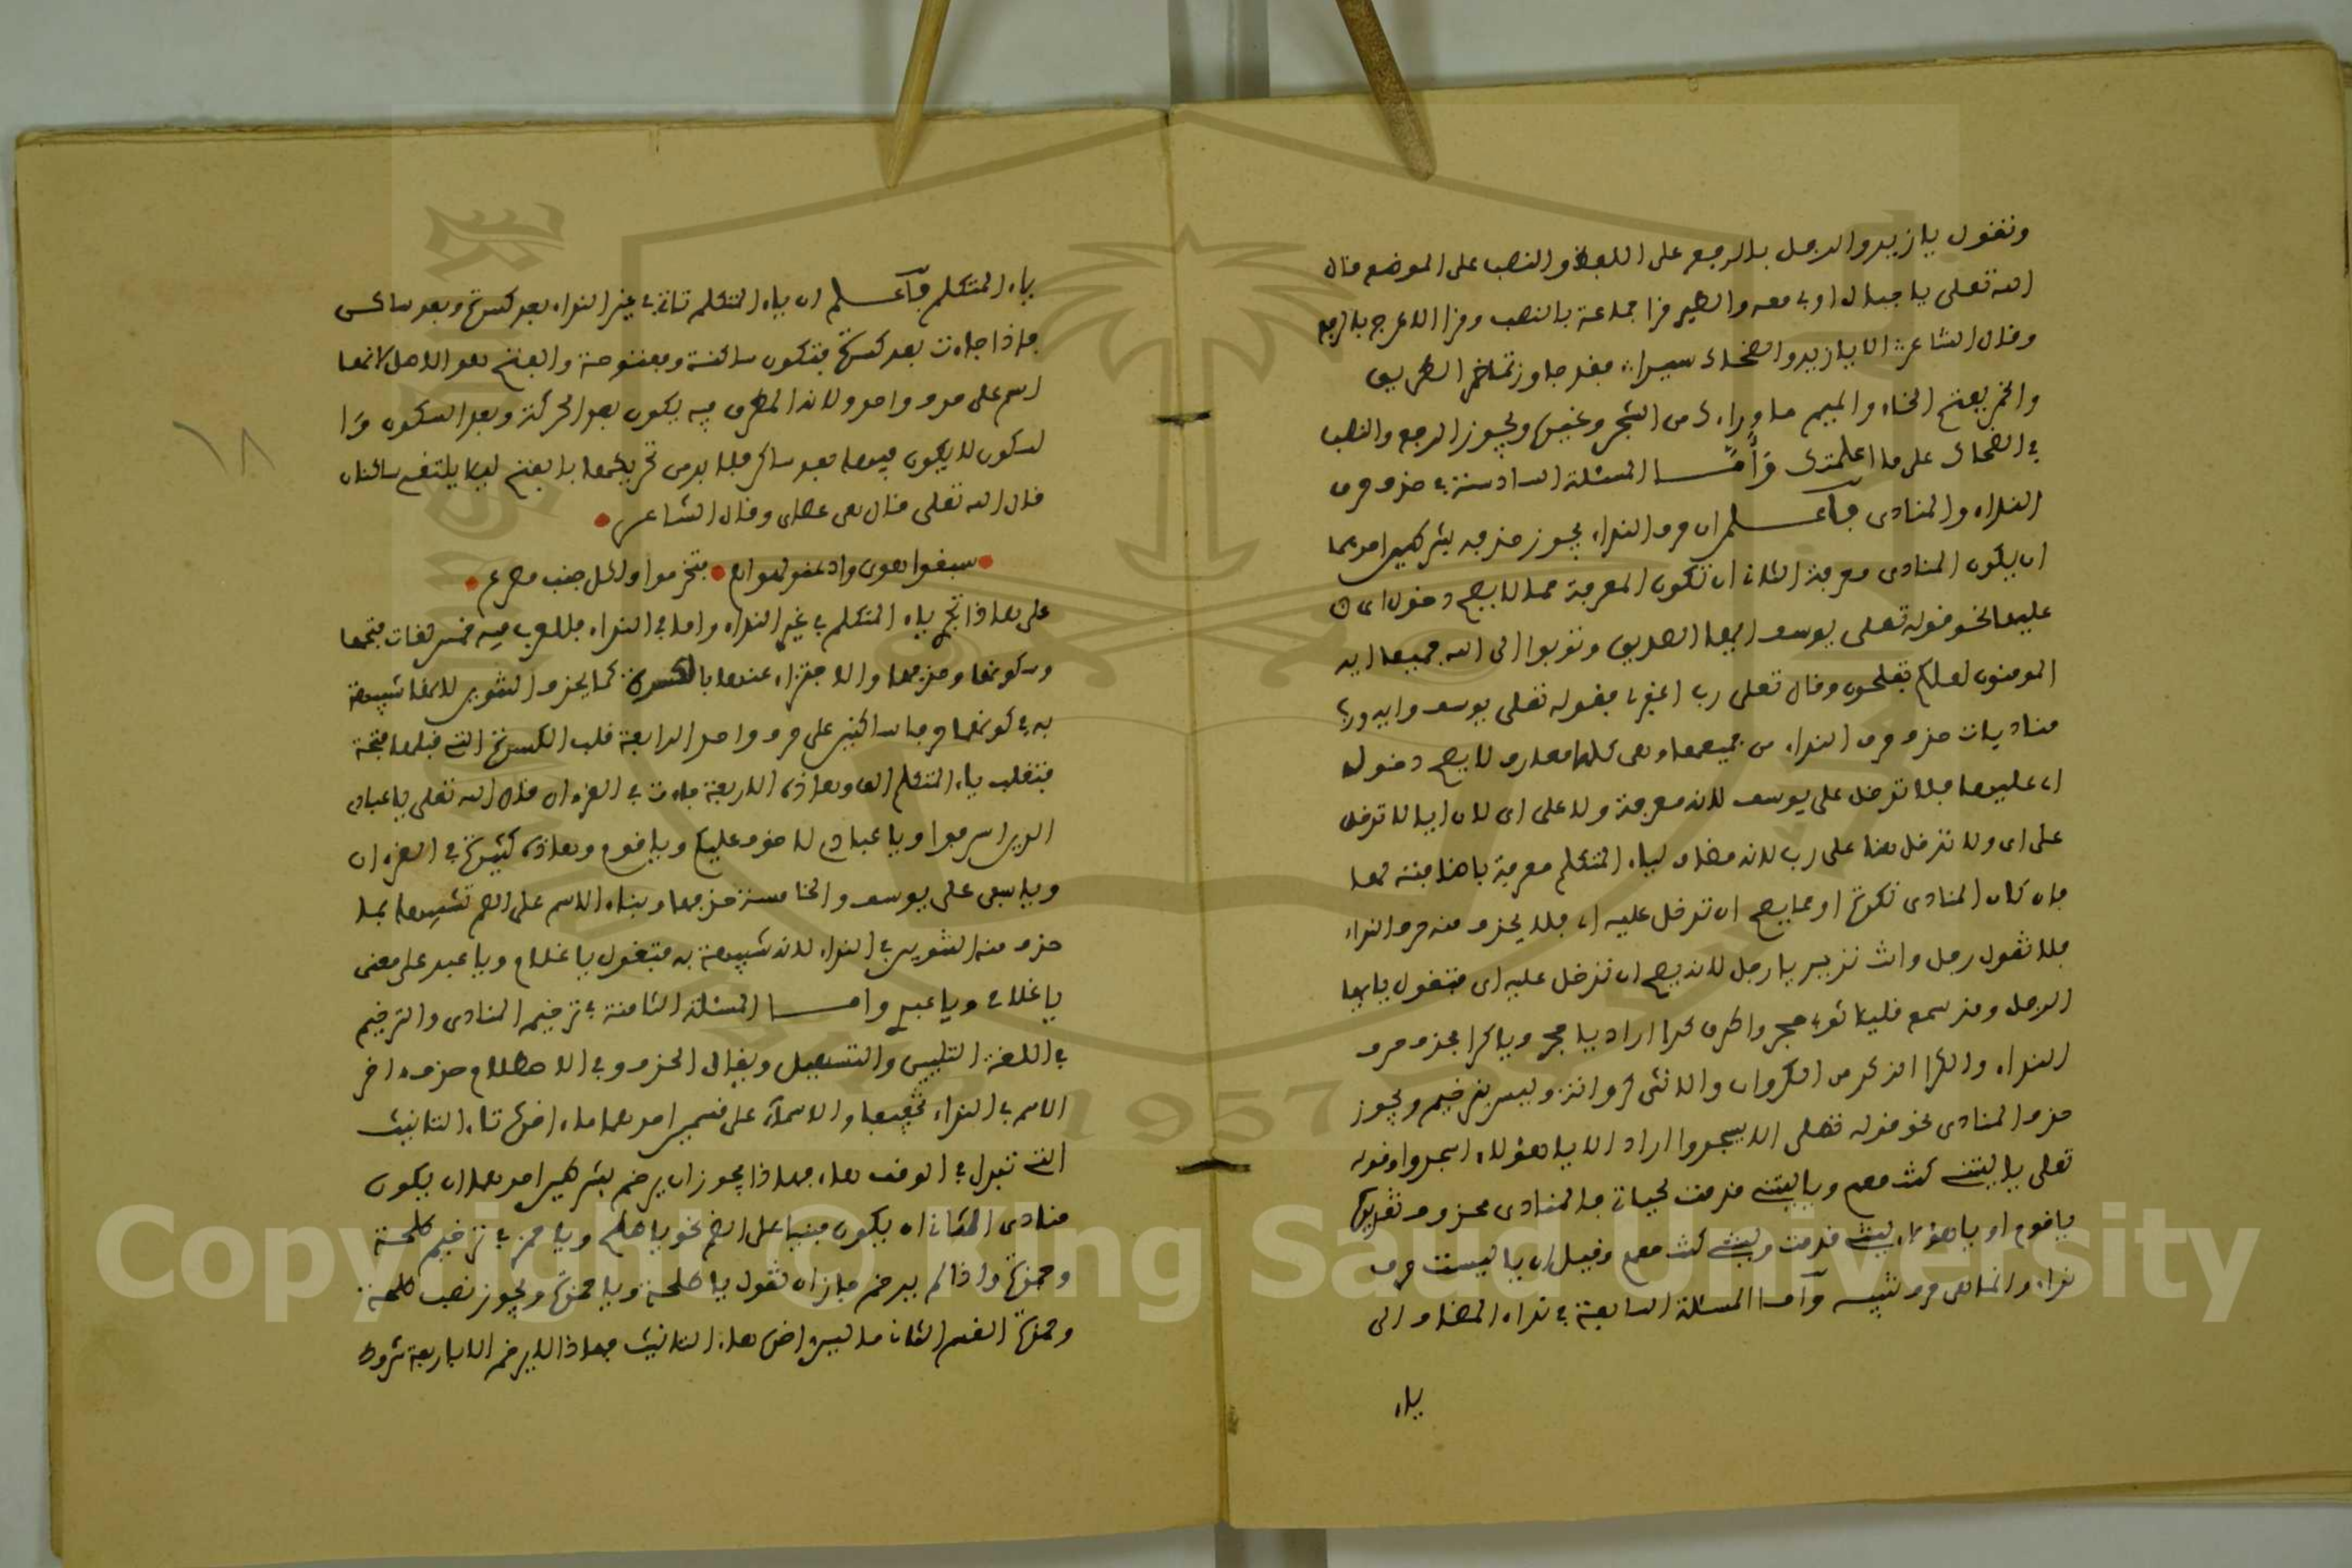 وتقول يا زيد والرجل بالرفع على اللفظ والنصب على الموضع قال
الله تعلى يا جبال اوبي معه والطير قرا جماعة بالنصب وقرا الاعرج بالرفع
وقال الشاعر الا يا زيد والضحاك سيرا فقد جاوزتما خمر الطريق
والخمر بفتح الخاء والميم ما وراءك من الشجر وغيره ويجوز الرفع والنصب
في الضحاك على ما اعلمتك وأمّا المسئلة السادسة في حذف حرف
النداء والمنادى فآعلم ان حرف النداء يجوز حذفه بشرطين احدهما
ان يكون المنادى معرفة الثاني ان تكون المعرفة مما لا يصح دخول اى
عليها نحو قوله تعلى يوسف ايها الصديق وتوبوا الى الله جميعا ايه
المومنون لعلكم تفلحون وقال تعلى رب اغفر لي فقوله تعلى يوسف وايه ورب
مناديات حذف حرف النداء من جميعها وهى كلها معارف لا يصح دخول
اى عليها فلا تدخل على يوسف لانه معرفة ولا على اى لان ايا لا تدخل
على اى ولا تدخل هنا على رب لانه مضاف لياء المتكلم معرفة باضافته لها
فان كان المنادى نكرة او مما يصح ان تدخل عليه اى فلا يحذف منه حرف النداء
فلا تقول رجل وانت تريد يا رجل لانه يصح ان تدخل عليه اى فتقول يا ايها
الرجل وقد سمع قليلا ثوبي حجر واطرق كرا اراد يا حجر ويا كرا فحذف حرف
النداء والكرا الذكر من الكروان والانثى كروانة وليس بترخيم ويجوز
حذف المنادى نحو قوله تعلى الا يسجدوا اراد الا يا هؤلاء اسجدوا وقوله
تعلى يا ليتني كنت معهم ويا ليتني قدمت لحياتي فالمنادى محذوف تقديره
يا قوم او يا هؤلاء ليتني قدمت وليتني كنت معهم وقيل ان يا ليست حرف
نداء وانما هى حرف تنبيه وآما المسئلة السابعة في نداء المضاف الى
ياء
١٨
ياء المتكلم فآعلم ان ياء المتكلم تاتي في غير النداء بعد كسرة وبعد ساكن
فاذا جاءت بعد كسرة فتكون ساكنة ومفتوحة والفتح هو الاصل لانها
اسم على حرف واحد ولان المطرف فيه يكون بعد الحركة وبعد السكون وا
لسكون لا يكون فيها بعد ساكن فلا بد من تحريكها بالفتح ليلا يلتقى ساكنان
قال الله تعلى قال هى عصاى وقال الشاعر
سبقوا هوى واعنقوا لهواهم فتخرموا ولكل جنب مصرع
على هذا تجئ ياء المتكلم في غير النداء واما في النداء فللعرب فيه خمس لغات فتحها
وسكونها وحذفها والاجتزاء عنها بالكسرة كما يحذف التنوين لانها شبيهة
به في كونها حرفا ساكنين على حرف واحد الرابعة قلب الكسرة التي قبلها فتحة
فتقلب ياء المتكلم الفا وهذه الاربعة جاءت في القرءان قال الله تعلى يا عبادى
الذين اسرفوا ويا عباد لا خوف عليكم ويا قوم وهذه كثيرة في القرءان
ويا اسفى على يوسف والخامسة حذفها وبناء الاسم على الضم تشبيها بما
حذف منه التنوين في النداء لانه شبيهة به فتقول يا غلام ويا عبد على معنى
يا غلامي ويا عبدي وامـا المسئلة الثامنة في ترخيم المنادى والترخيم
في اللغة التليين والتسهيل ويقال الحذف وفي الاصطلاح حذف اخر
الاسم في النداء تخفيفا والاسماء على قسمين احدهما ما اخره تاء التانيث
التي تبدل في الوقف هاء فهذا يجوز ان يرخم بشرطين احدهما ان يكون
منادى الثاني ان يكون مبنيا على الضم نحو يا طلح ويا حمز في ترخيم طلحة
وحمزة واذا لم يرخم جاز ان تقول يا طلحة ويا حمزة ويجوز نصب طلحة
وحمزة القسم الثاني ما ليس اخره هاء التانيث فهذا لا يرخم الا باربعة شروط
Copyright © King Saud University
1957